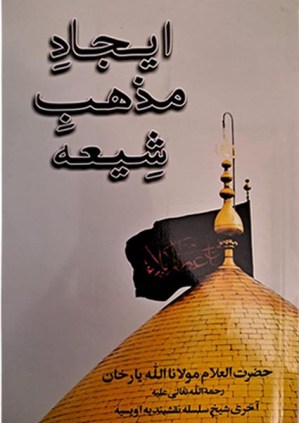 ایجادِ
مذهبِ
شِیعہ
حضرت العلام مولانا اللہ یار خان
رحمۃ اللہ تعالیٰ علیہ
آخری شیخ سلسلہ نقشبندیہ اویسیہ